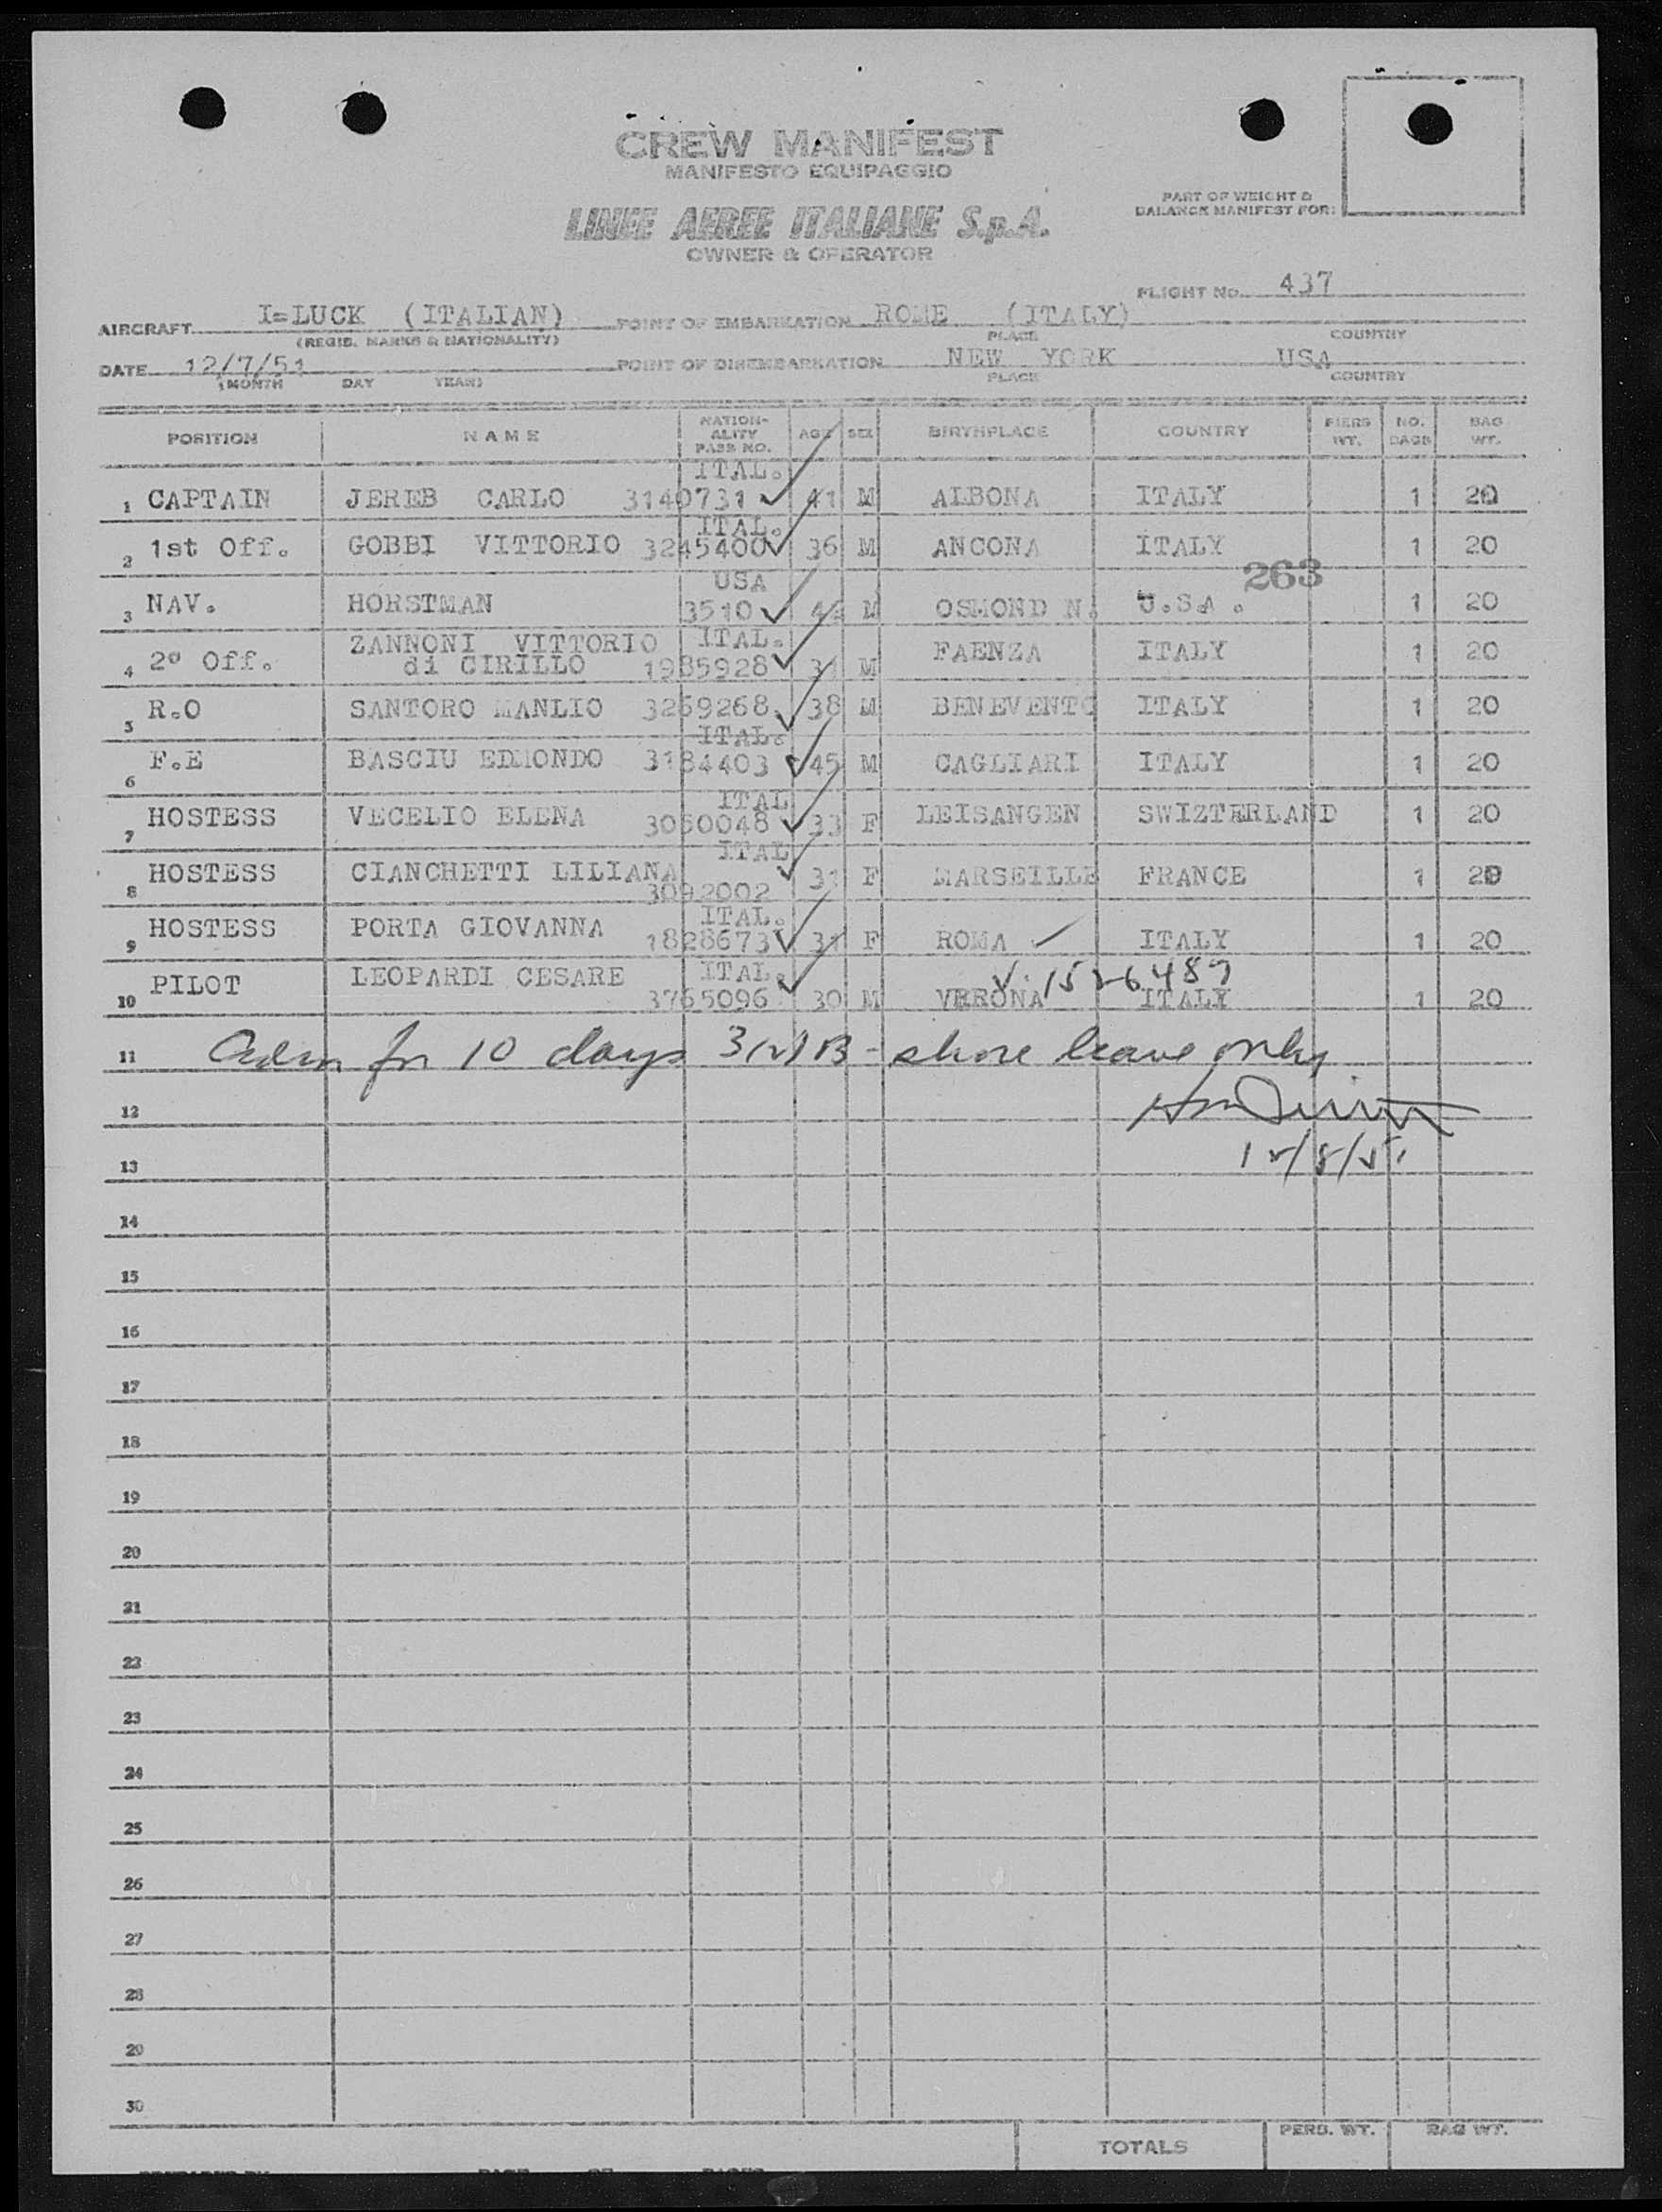 CREW MANIFEST
MANIFESTO EQUIPAGGIO
PART OF WEIGHT &
BALANCE MANIFEST FOR:
LINEE AEREE ITALIANE S.p.A.
OWNER & OPERATOR
FLIGHT No. 437
AIRCRAFT I=LUCK (ITALIAN) POINT OF EMBARKATION ROME (ITALY)
(REGIS. MARKS & NATIONALITY) PLACE COUNTRY
DATE 12/7/51 POINT OF DISEMBARKATION NEW YORK USA
(MONTH DAY YEAR) PLACE COUNTRY
POSITION NAME NATION-ALITY PASS NO. AGE SEX BIRTHPLACE COUNTRY PERS WT. NO. BAGS BAG WT.
ITAL.
1 CAPTAIN JEREB CARLO 3140731 ✓ 41 M ALBONA ITALY 1 20
ITAL.
2 1st Off. GOBBI VITTORIO 3245400 ✓ 36 M ANCONA ITALY 1 20
USA 263
3 NAV. HORSTMAN 3510 ✓ M OSMOND N. U.S.A. 1 20
ZANNONI VITTORIO ITAL.
4 2º Off. di CIRILLO 1985928 ✓ M FAENZA ITALY 1 20
5 R.O SANTORO MANLIO 3269268 ✓ 38 M BENEVENTO ITALY 1 20
ITAL.
6 F.E BASCIU EDMONDO 3184403 ✓ 45 M CAGLIARI ITALY 1 20
ITAL
7 HOSTESS VECELIO ELENA 3050048 ✓ 33 F LEISANGEN SWIZTERLAND 1 20
ITAL
8 HOSTESS CIANCHETTI LILIANA 3092002 ✓ 31 F MARSEILLE FRANCE 1 20
ITAL.
9 HOSTESS PORTA GIOVANNA 1828673 ✓ 31 F ROMA ✓ ITALY 1 20
ITAL. V. 1526489
10 PILOT LEOPARDI CESARE 3765096 ✓ 30 M VERONA ITALY 1 20
11 Adm for 10 days 3(2)B - shore leave only
12
13 12/8/51
14
15
16
17
18
19
20
21
22
23
24
25
26
27
28
29
30
TOTALS PERS. WT. BAG WT.